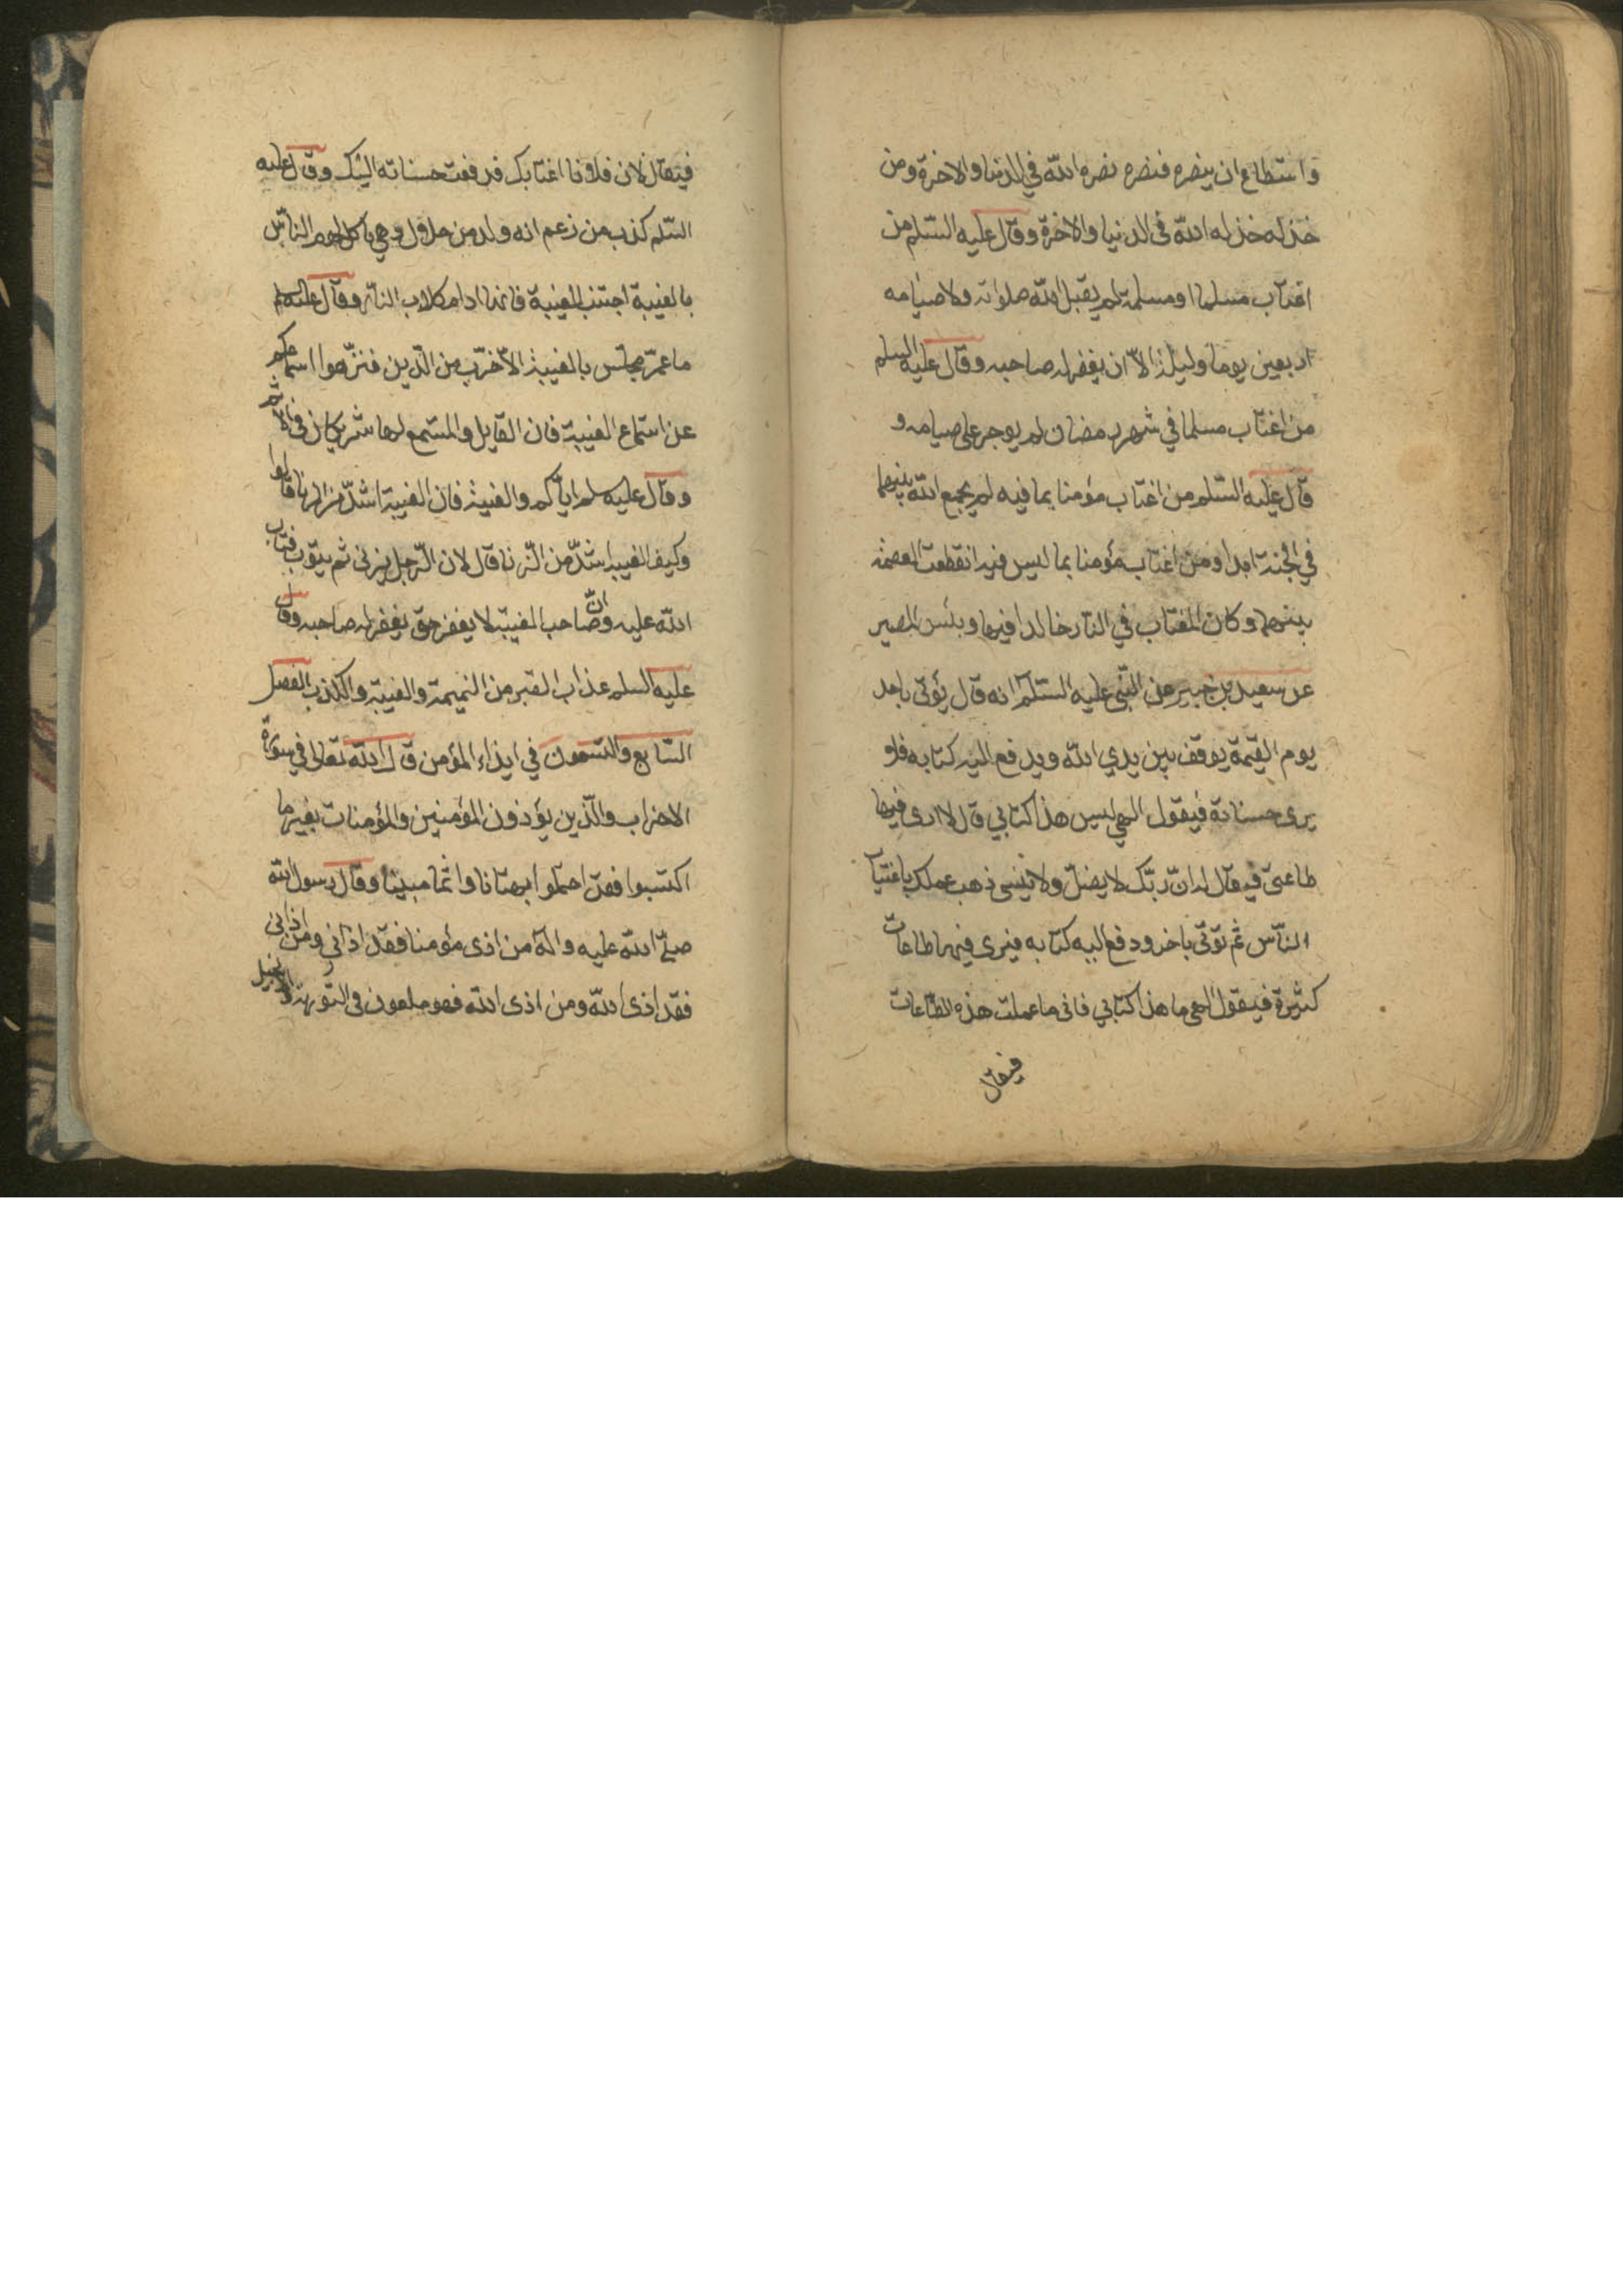 واستطاع ان ينصره فنصره نصره الله في الدنيا والاخرة ومن
خذله خذله الله فى الدنيا والاخرة وقال عليه السلم من
اغتاب مسلما او مسلمة لم يقبل الله صلواته ولا صيامه
اربعين يوما وليلة الا ان يغفر له صاحبه وقال عليه السلم
من اغتاب مسلما في شهر رمضان لم يوجر على صيامه و
قال عليه السلم من اغتاب مؤمنا بما فيه لم يجمع الله بينهما
في الجنة ابدا ومن اغتاب مؤمنا بما ليس فيه انقطعت العصمة
بينهما وكان المغتاب في النار خالدا فيها وبئس المصير
عن سعيد بن جبير عن النبي عليه السلم انه قال يؤتى باحد
يوم القيمة يوقف بين يدي الله ويدفع اليه كتابه فلا
يرى حسناته فيقول الهي ليس هذا كتابي قال لا ارى فيها
طاعتى فيقال له ان ربك لا يضل ولا ينسى ذهب عملك باغتياب
الناس ثم يؤتى باخر ودفع اليه كتابه فيرى فيها طاعات
كثيرة فيقول الهى ما هذا كتابي فانى ما عملت هذه الطاعات
فيقال
فيقال لان فلانا اغتابك فدفعت حسناته اليك وقال عليه
السلم كذب من زعم انه ولد من حلال وهي ياكل لحوم الناس
بالغيبة اجتنب الغيبة فانها ادام كلاب النار وقال عليه السلم
ما عمر مجلس بالغيبة الا خرب من الدين فنزهوا اسماعكم
عن استماع الغيبة فان القايل والمستمع لها شريكان في الاثم
وقال عليه سلم اياكم والغيبة فان الغيبة اشد من الزنا قالوا
وكيف الغيبة اشد من الزنا قال لان الرجل يزنى ثم يتوب فتاب
الله عليه وان صاحب الغيبة لا يغفر حتى يغفر له صاحبه وقال
عليه السلم عذاب القبر من النميمة والغيبة والكذب الفصل
السابع والتسعون في ايذاء المؤمن قال الله تعالى في سورة
الاحزاب والذين يؤذون المؤمنين والمؤمنات بغير ما
اكتسبوا فقد احتملوا بهتانا واثما مبينا وقال رسول الله
صلى الله عليه واله من اذى مؤمنا فقد اذانى ومن اذانى
فقد اذى الله ومن اذى الله فهو ملعون فى التورية والانجيل